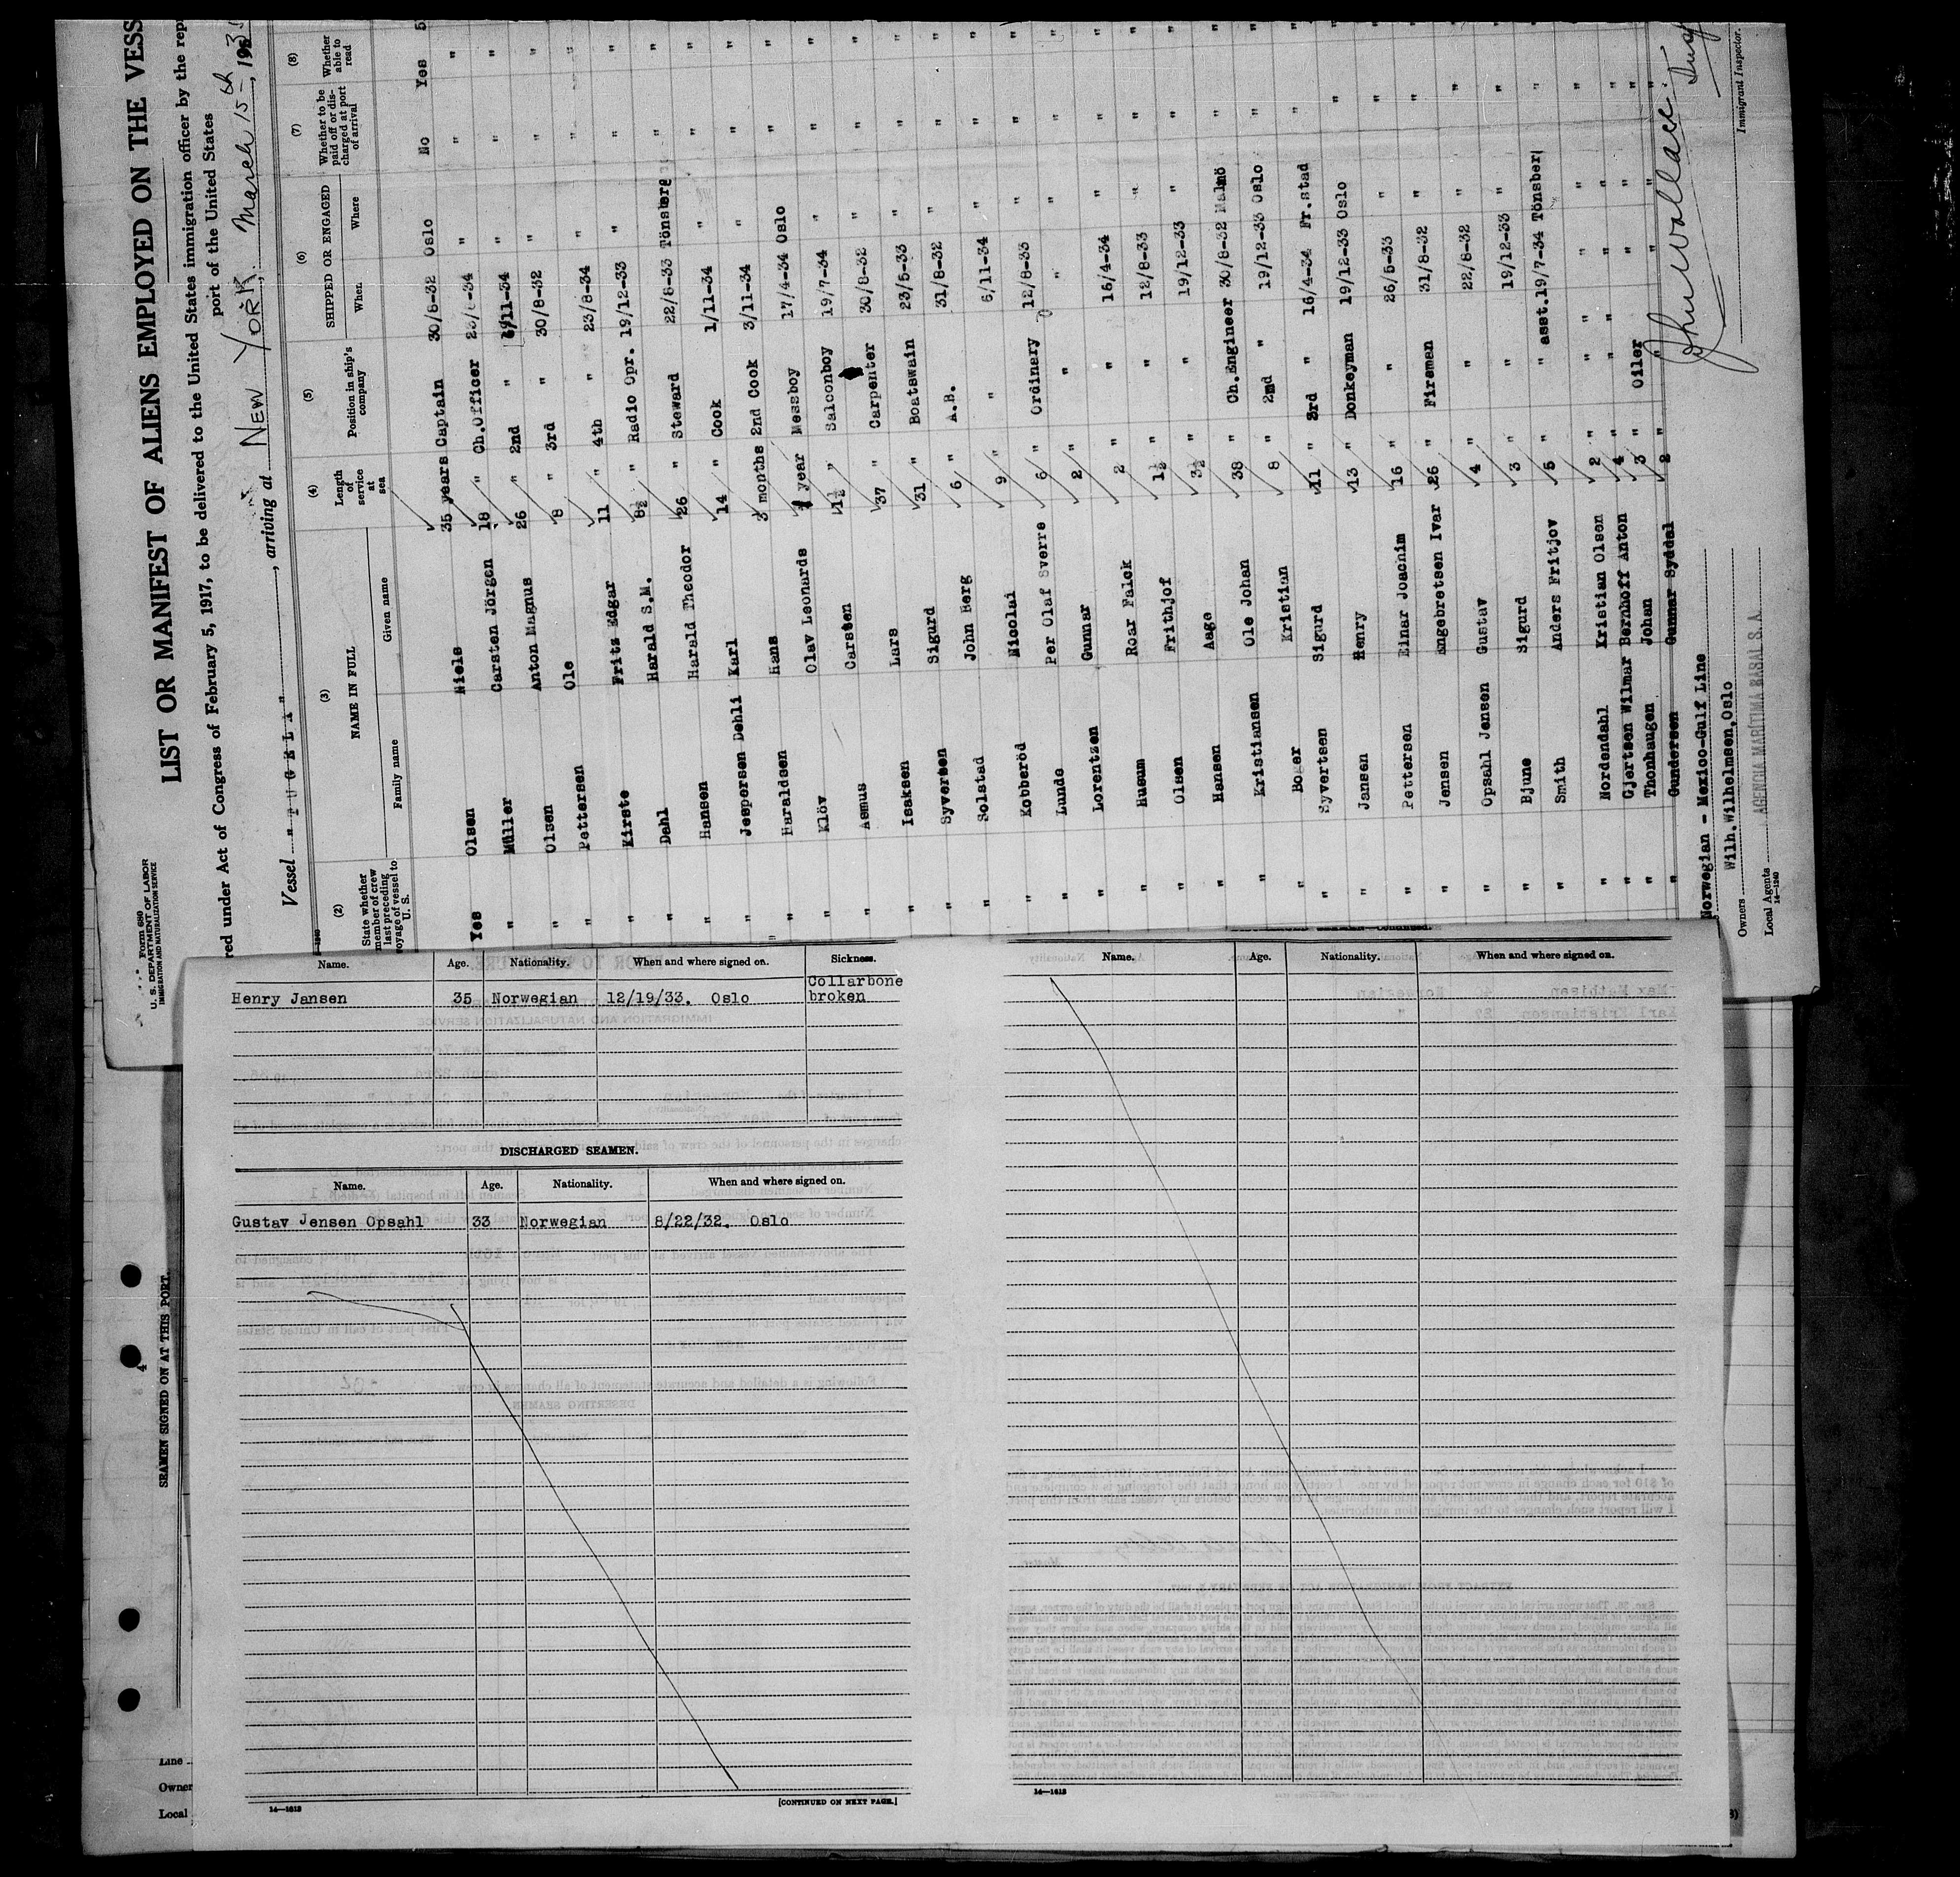 Form 680
U. S. DEPARTMENT OF LABOR
IMMIGRATION AND NATURALIZATION SERVICE
LIST OR MANIFEST OF ALIENS EMPLOYED ON THE VESS
red under Act of Congress of February 5, 1917, to be delivered to the United States immigration officer by the rep
port of the United States
Vessel "TUGELA", arriving at NEW YORK. March 15th, 193
(2) (3) (4) (5) (6) (7) (8)
State whether member of crew last preceding voyage of vessel to U. S.
NAME IN FULL
Family name Given name
Length of service at sea
Position in ship's company
SHIPPED OR ENGAGED
When Where
Whether to be paid off or discharged at port of arrival
Whether able to read
Yes Olsen Niels 35 years Captain 30/8-32 Oslo No Yes 5
" Müller Carsten Jörgen 18 " Ch.Officer -34 " " "
" Olsen Anton Magnus 26 " 2nd " /11-34 " " "
" Pettersen Ole 8 " 3rd " 30/8-32 " " "
" Kirste Fritz Edgar 11 " 4th " 23/8-34 " " "
" Dahl Harald S.M. 8½ " Radio Opr. 19/12-33 " " "
" Hansen Harald Theodor 26 " Steward 22/8-33 Tönsberg " "
" Jespersen Dehli Karl 14 " Cook 1/11-34 " " "
" Haraldsen Hans 3 months 2nd Cook 3/11-34 " " "
" Klöv Olav Leonards year Messboy 17/4-34 Oslo " "
" Asmus Carsten 1½ " Saloonboy 19/7-34 " " "
" Isaksen Lars 37 " Carpenter 30/8-32 " " "
" Syversen Sigurd 31 " Boatswain 23/5-33 " " "
" Solstad John Berg 6 " A.B. 31/8-32 " " "
" Kobberöd Nicolai 9 " " 6/11-34 " " "
" Lunde Per Olaf Sverre 6 " Ordinary 12/8-33 " " "
" Lorentzen Gunnar 2 " " " " " "
" Husum Roar Falck 2 " " 16/4-34 " " "
" Olsen Frithjof 1½ " " 12/8-33 " " "
" Hansen Aage 3½ " " 19/12-33 " " "
" Kristiansen Ole Johan 38 " Ch.Engineer 30/8-32 Malmö " "
" Boger Kristian 8 " 2nd " 19/12-33 Oslo " "
" Syvertsen Sigurd 11 " 3rd " 16/4-34 Fr.stad " "
" Jansen Henry 13 " Donkeyman 19/12-33 Oslo " "
" Pettersen Einar Joachim 16 " " 26/5-33 " " "
" Jensen Angebretsen Ivar 26 " Fireman 31/8-32 " " "
" Opsahl Jensen Gustav 4 " " 22/8-32 " " "
" Bjune Sigurd 3 " " 19/12-33 " " "
" Smith Anders Fritjov 5 " " asst. 19/7-34 Tönsberg " "
" Nordendahl Kristian Olsen 2 " " " " " "
" Gjertsen Wilmar Bernhoff Anton 4 " " " " " "
" Thonhaugen Johan 3 " Oiler " " "
" Gundersen Gunnar Syddal 2 " " " "
Norwegian - Mexico-Gulf Line
Owners Wilh.Wilhelmsen,Oslo
Local Agents AGENCIA MARÍTIMA RASAL S. A.
14—1240
John Wallace
Immigrant Inspector.
Name. Age. Nationality. When and where signed on. Sickness.
Henry Jansen 35 Norwegian 12/19/33. Oslo Collarbone broken
DISCHARGED SEAMEN.
Name. Age. Nationality. When and where signed on.
Gustav Jensen Opsahl 33 Norwegian 8/22/32. Oslo
14—1613
[CONTINUED ON NEXT PAGE.]
Name. Age. Nationality. When and where signed on.
14—1613
4
SEAMEN SIGNED ON AT THIS PORT.
Line
Owner
Local